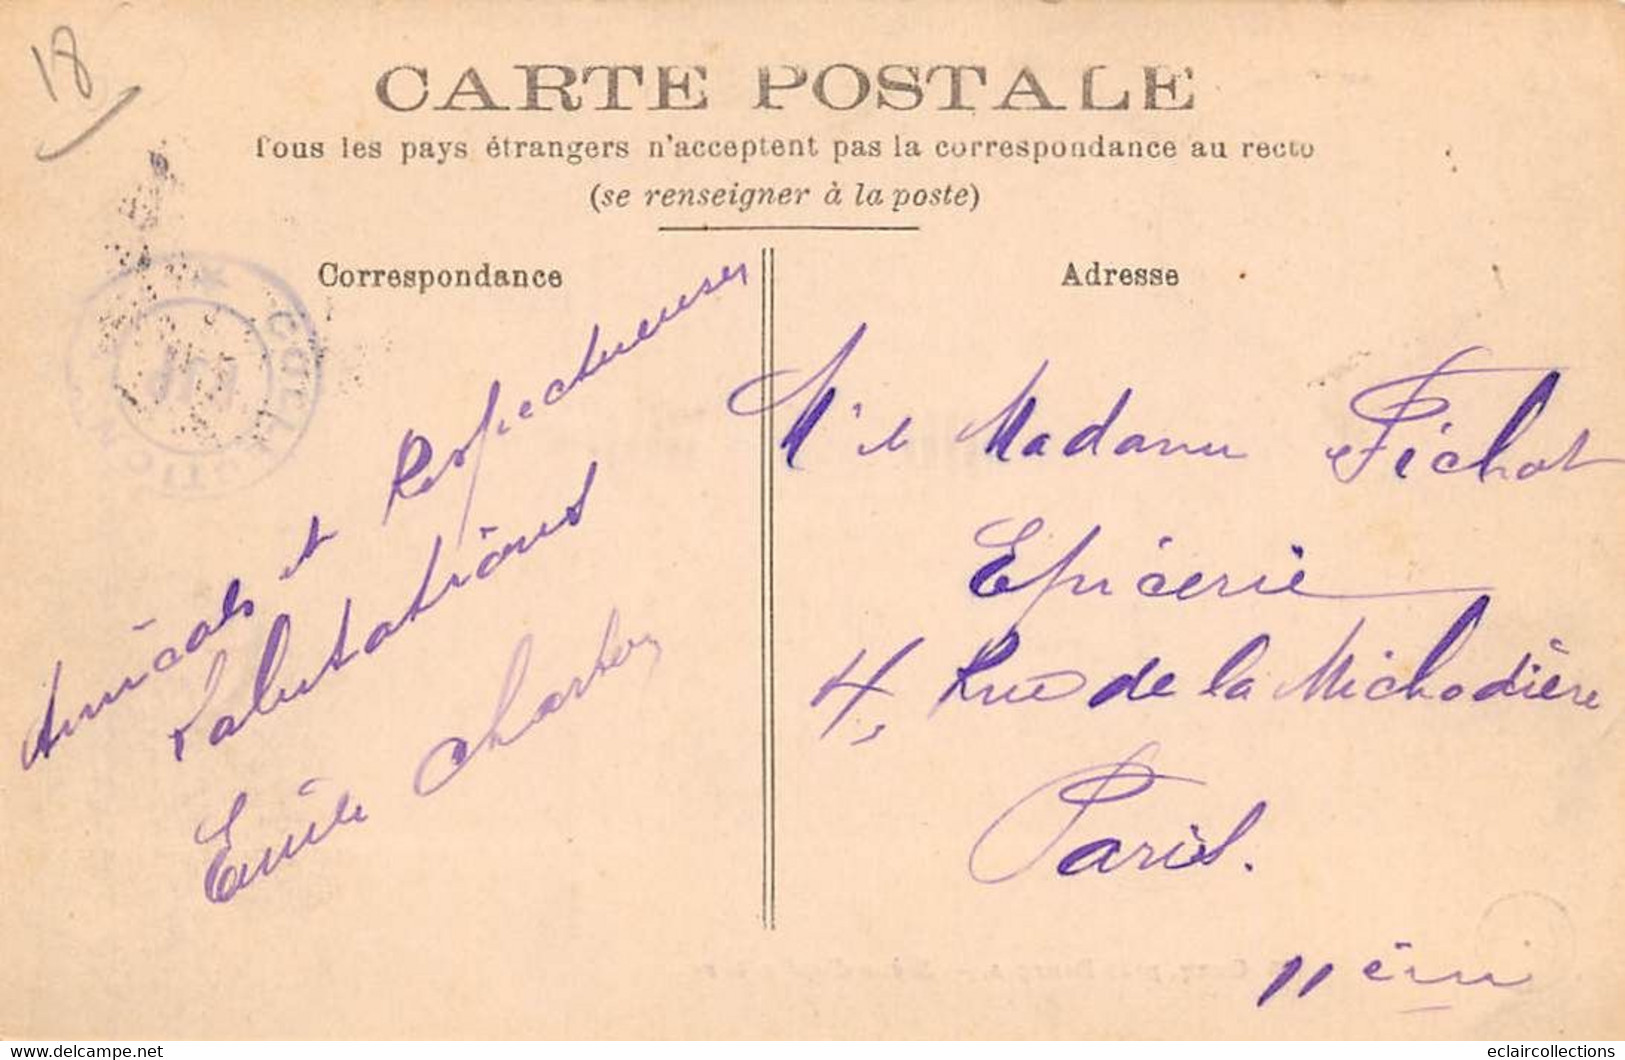 18
CARTE POSTALE
Tous les pays étrangers n'acceptent pas la correspondance au recto
(se renseigner à la poste)
Correspondance
Amicales et Respectueuses
Salutations
Emile
Adresse
Madame Fichot
Epicerie
4, Rue de la Michodière
Paris.
11ème
eclaircollections